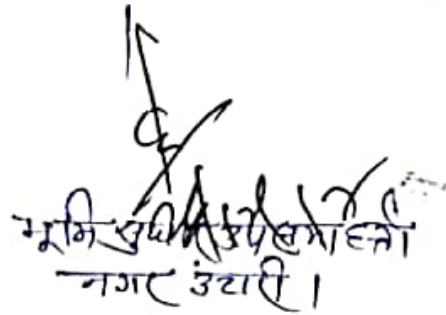 भूमि सुधार उप समाहर्ता
नगर उंटारी ।